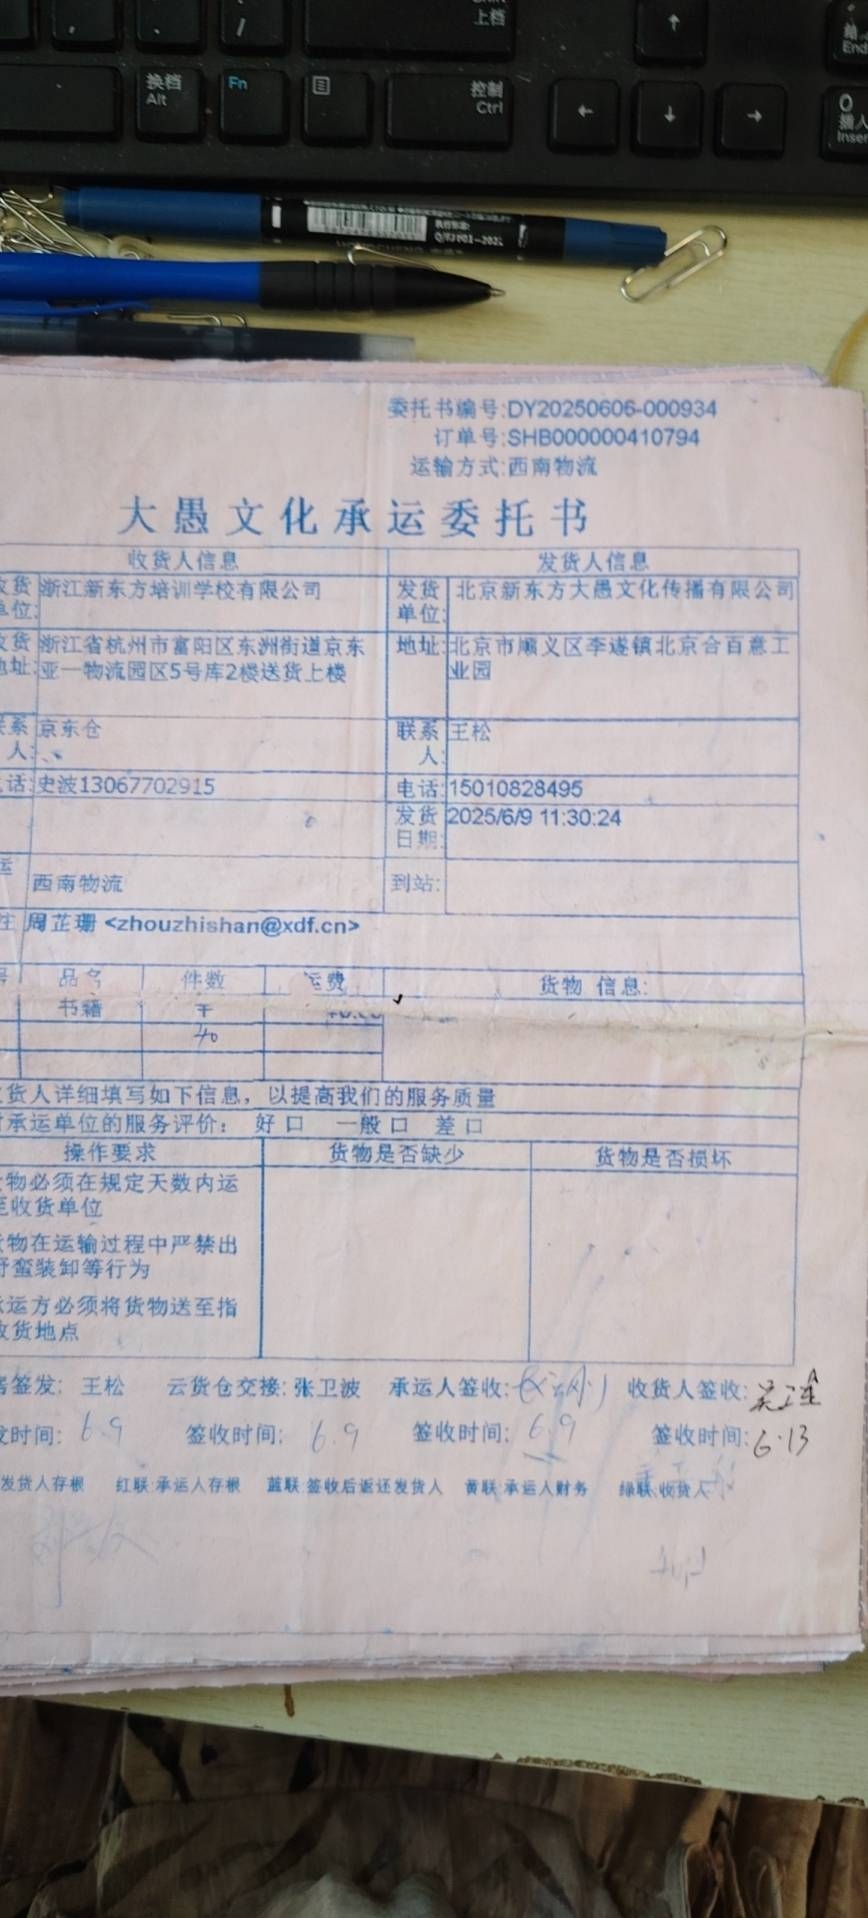 上档
End
换档
Alt
Fn
控制
Ctrl
←
↓
→
↑
插入
Inser
委托书编号:DY20250606-000934
订单号:SHB000000410794
运输方式:西南物流
大愚文化承运委托书
收货人信息 发货人信息
收货单位: 浙江新东方培训学校有限公司 发货单位: 北京新东方大愚文化传播有限公司
地址: 浙江省杭州市富阳区东洲街道京东
亚一物流园区5号库2楼送货上楼 地址: 北京市顺义区李遂镇北京合百意工
业园
联系人: 京东仓 联系人: 王松
话: 史波13067702915 电话: 15010828495
发货日期: 2025/6/9 11:30:24
西南物流 到站:
周芷珊 <zhouzhishan@xdf.cn>
品名 件数 运费 货物 信息:
书籍
40
货人详细填写如下信息，以提高我们的服务质量
承运单位的服务评价: 好口 一般口 差口
操作要求 货物是否缺少 货物是否损坏
物必须在规定天数内运
至收货单位
物在运输过程中严禁出
野蛮装卸等行为
运方必须将货物送至指
收货地点
签发: 王松 云货仓交接: 张卫波 承运人签收: 收货人签收:
时间: 6.9 签收时间: 6.9 签收时间: 6.9 签收时间: 6.13
发货人存根 红联:承运人存根 蓝联:签收后返还发货人 黄联:承运人财务 绿联:收货人